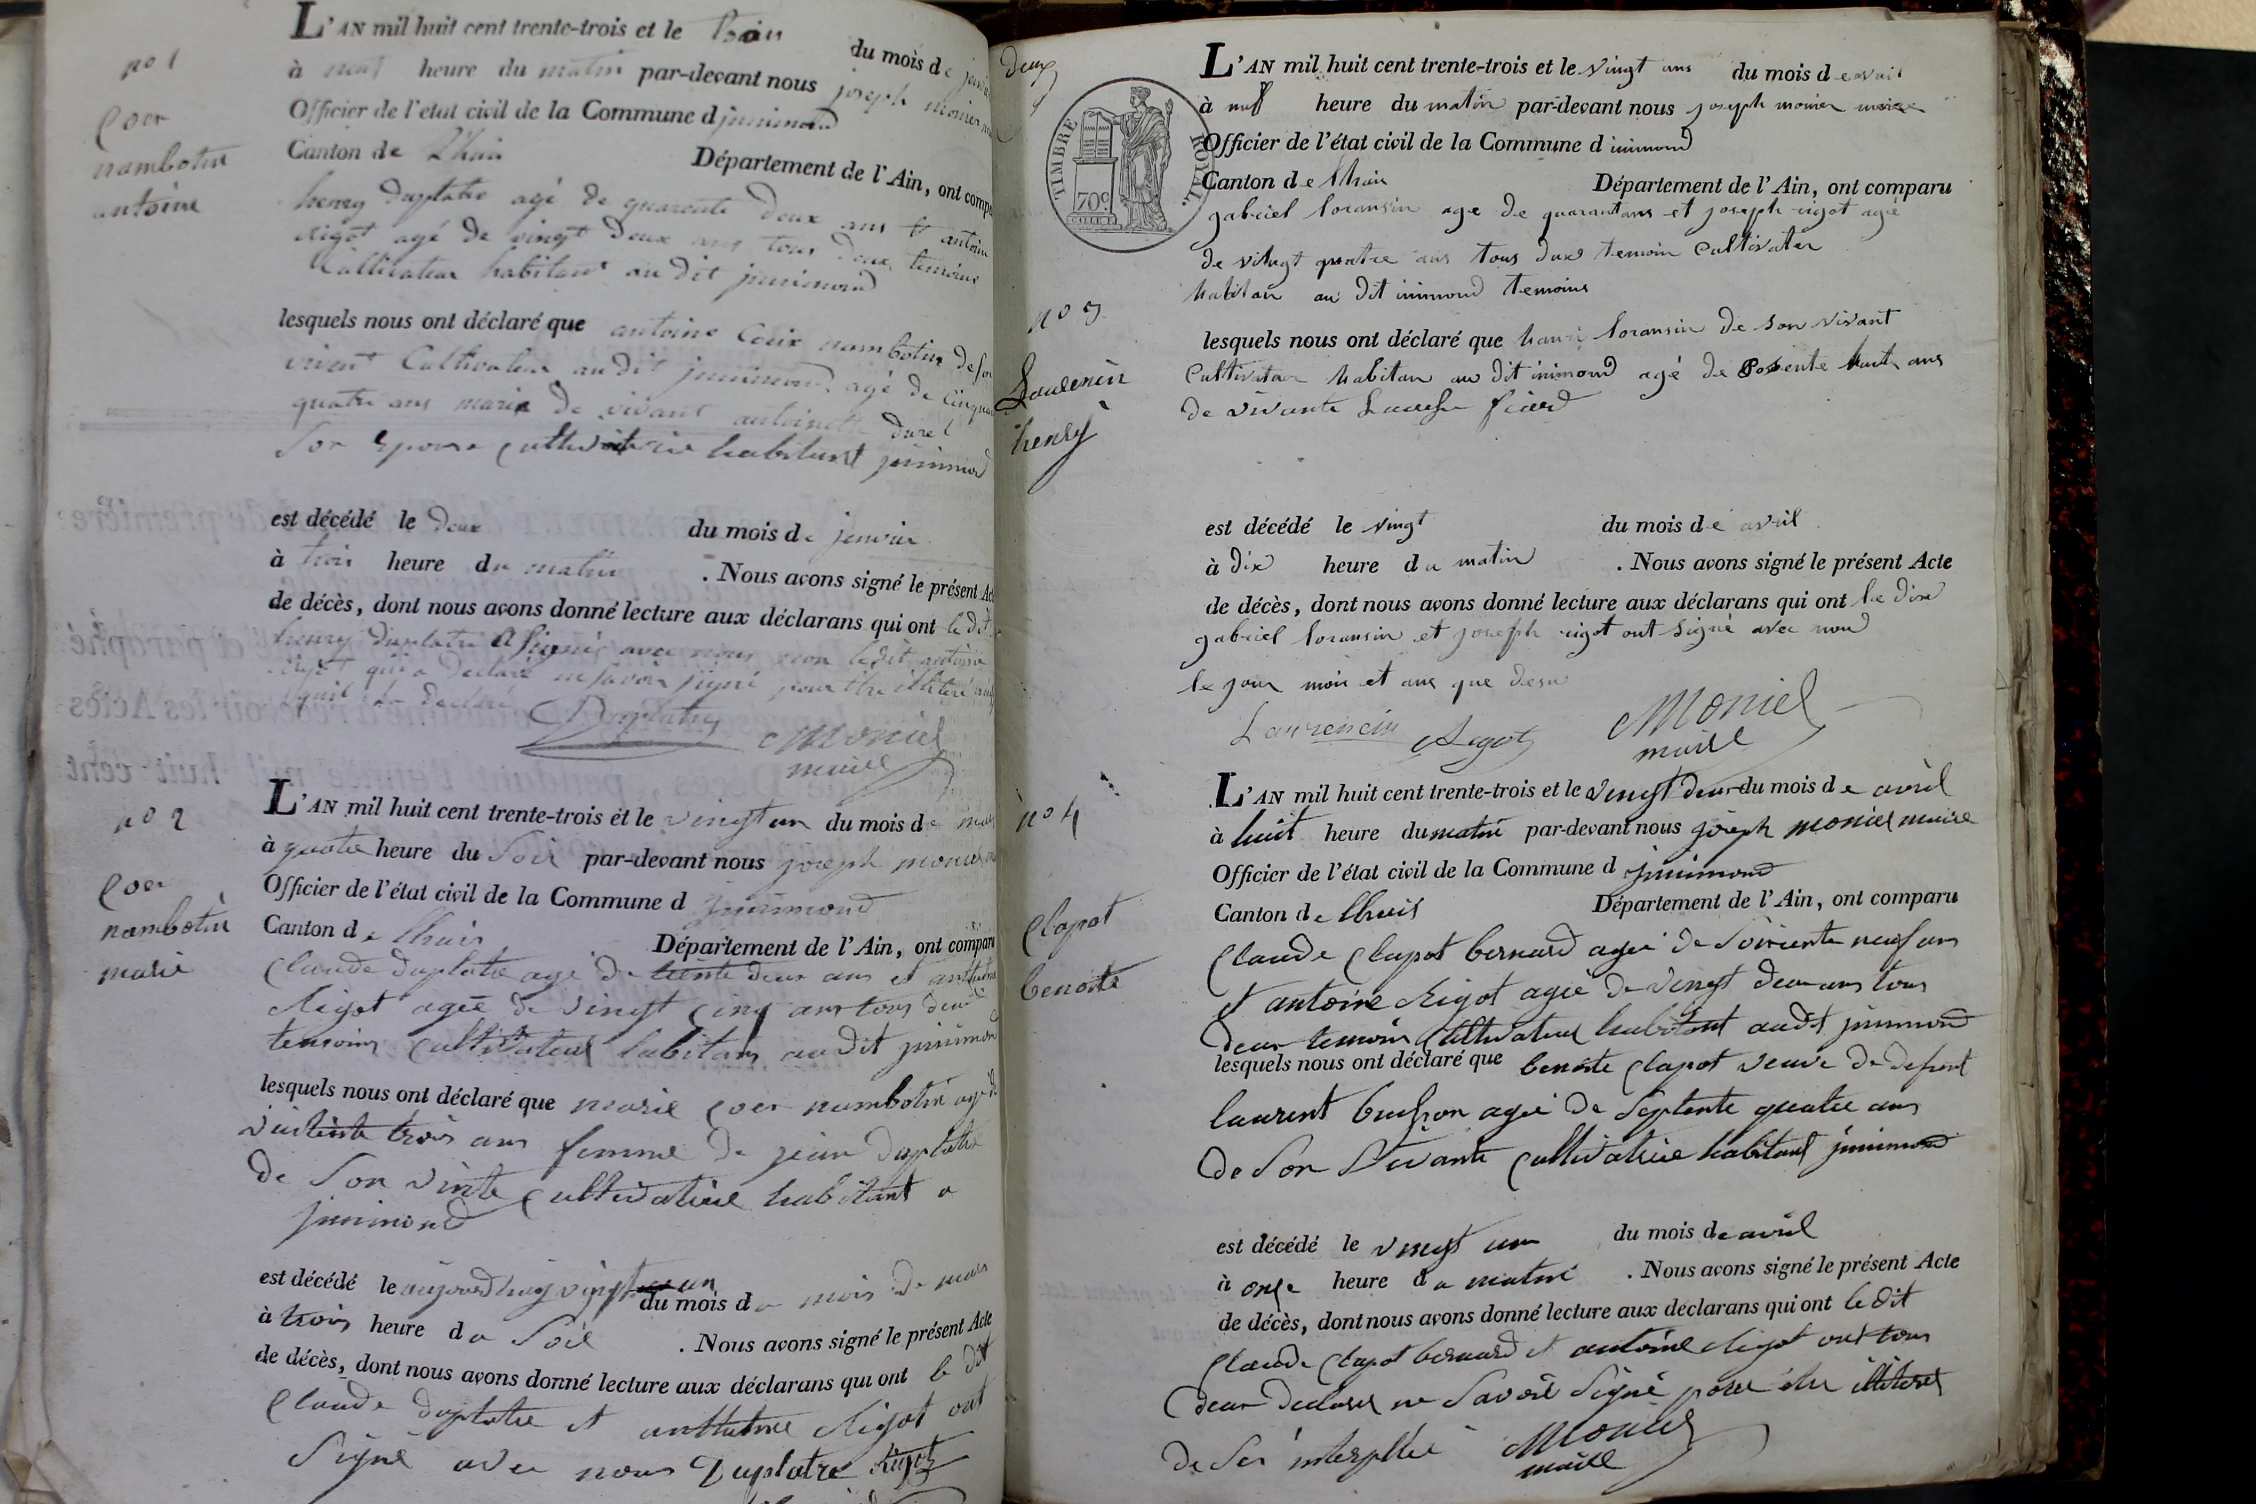 no 1
Coer
nambotin
antoine
L'AN mil huit cent trente-trois et le trois du mois de
à neuf heure du matin par-devant nous joseph monier
Officier de l'etat civil de la Commune d
Canton de Lhuis Département de l'Ain, ont comparu
henry duplatre agé de quarente deux ans et antoine
rigot agé de vingt deux ans tous deux temoins
Cultivateur habitant au dit
lesquels nous ont déclaré que antoine Coer nambotin de son
vivent Cultivateur au dit agé de cinquante
quatre ans marié de vivant antoinette
Son epouse Cultivatrice habitant
est décédé le deux du mois de janvier
à trois heure du matin . Nous avons signé le présent Acte
de décès, dont nous avons donné lecture aux déclarans qui ont le dit
henry duplatre a Signé avec nous non ledit antoine
rigot qui a declaré ne savoir signé pour être illiteré
Duplatre Monier
maire
no 2
Coer
nambotin
marie
L'AN mil huit cent trente-trois et le vingt un du mois de mars
à quatre heure du Soir par-devant nous joseph monier
Officier de l'état civil de la Commune d
Canton de Lhuis Département de l'Ain, ont comparu
Claude duplatre agé de trente deux ans et
Rigot agée de vingt cinq ans tous deux
temoins Cultivateur habitans au dit
lesquels nous ont déclaré que marie Coer nambotin agé de
trois ans femme de jean duplatre
de Son Cultivatrice habitant a
est décédé le aujourdhuy vingt un du mois du mois de mars
à trois heure du Soir . Nous avons signé le présent Acte
de décès, dont nous avons donné lecture aux déclarans qui ont le dit
Claude duplatre et Rigot ont
Signé avec nous Duplatre Rigot
deux
TIMBRE ROYAL.
70c
no 3
Laurencin
henry
L'AN mil huit cent trente-trois et le vingt ans du mois de avril
à neuf heure du matin par-devant nous joseph monier maire
Officier de l'état civil de la Commune d inimond
Canton de Lhuis Département de l'Ain, ont comparu
gabriel loransin age de quarantans et joseph rigot agé
de vingt quatre ans tous deux temoin Cultivater
habitan au dit inimond temoins
lesquels nous ont déclaré que hanri loransin de son vivant
Cultivatar habitan au dit inimond agé de huit ans
de vivante
est décédé le vingt du mois de avril
à dix heure du matin . Nous avons signé le présent Acte
de décès, dont nous avons donné lecture aux déclarans qui ont
gabriel loransin et joseph rigot ont signé avec nous
le jour mois et ans que desu
Laurencin Rigot Monier
maire
no 4
Clapot
benoite
L'AN mil huit cent trente-trois et le vingt deux du mois de avril
à huit heure du matin par-devant nous joseph monier maire
Officier de l'état civil de la Commune d
Canton de Lhuis Département de l'Ain, ont comparu
Claude Clapot bernard agée de Soixante neuf ans
et antoine Rigot agée de vingt deux ans tous
deux temoin Cultivateur habitant audit
lesquels nous ont déclaré que benoite Clapot veuve de defunt
laurent agée de Septente quatre ans
de Son Vivante Cultivatrice habitant
est décédé le vingt un du mois de avril
à onze heure du matin . Nous avons signé le présent Acte
de décès, dont nous avons donné lecture aux déclarans qui ont le dit
Claude Clapot bernard et antoine Rigot ont tous
deux declarer ne Savoir Signé pour être illiteret
de Ses
Monier
maire